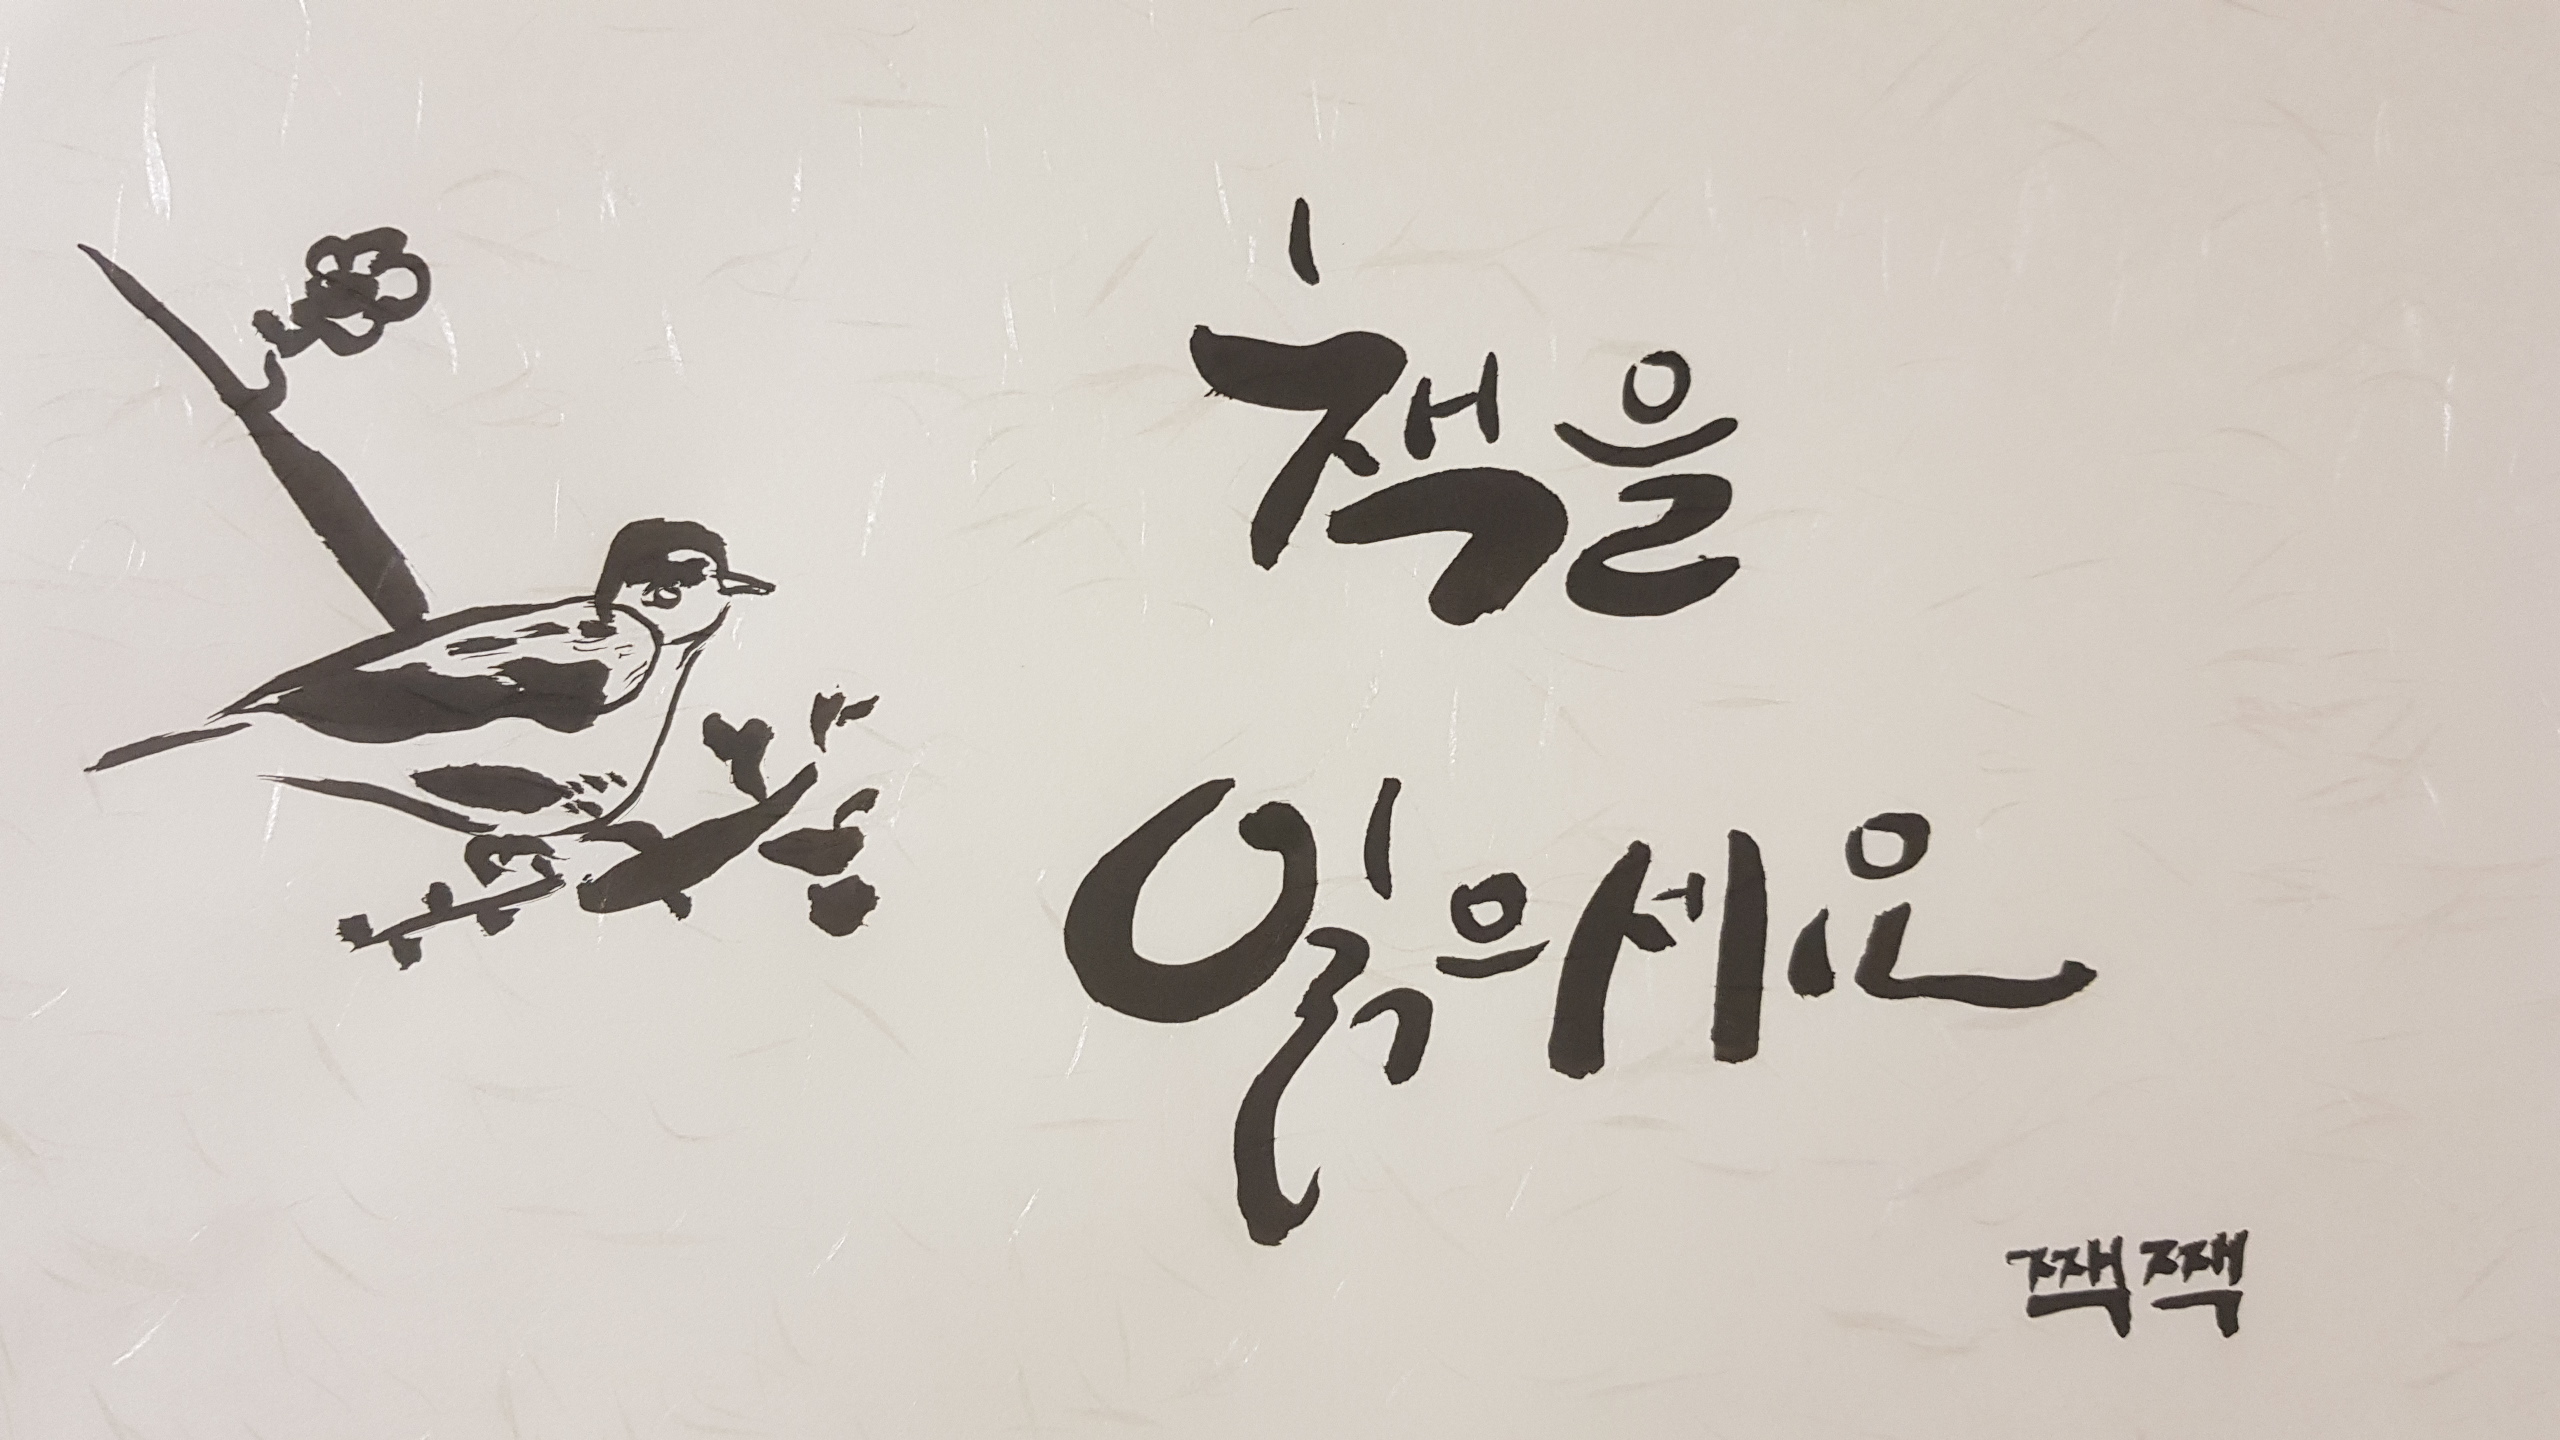 책을
읽으세요
짹짹